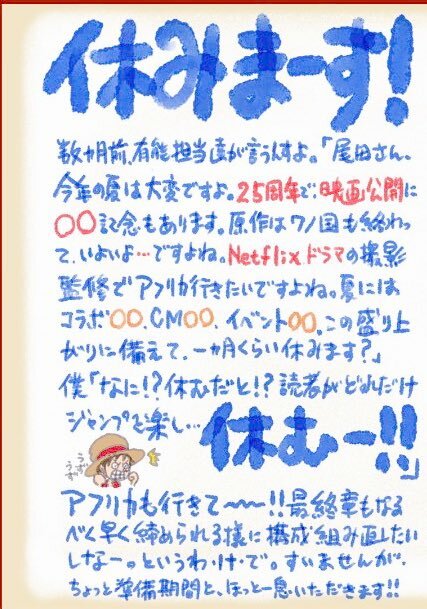 休みまーす!
数ヵ月前、有能担当直が言うんすよ。「尾田さん、
今年の夏は大変ですよ。25周年で、映画公開に
〇〇記念もあります。原作はワノ国も終わっ
て、いよいよ…ですよね。Netflixドラマの撮影
監修でアフリカ行きたいですよね。夏には
コラボ〇〇、CM〇〇、イベント〇〇。この盛り上
がりに備えて、一ヵ月くらい休みます?」
僕「なに!?休むだと!?読者がどれだけ
ジャンプを楽し…
休むーー!!」
うず
うず
アフリカも行きて〜〜!!最終章もなる
べく早く締められる様に構成組み直したい
しなー。というわ・け・で。すいませんが、
ちょっと準備期間と、ほっと一息いただきます!!